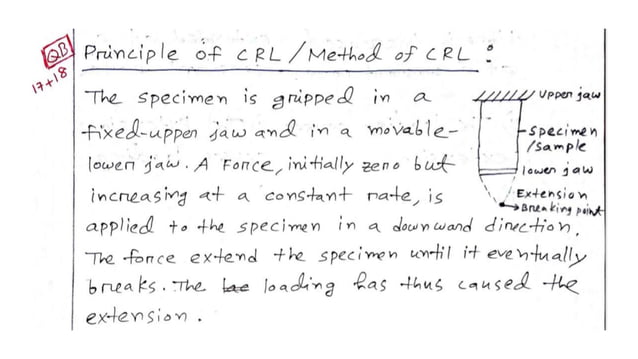 QB
17+18
Principle of CRL / Method of CRL :
The specimen is gripped in a
fixed-upper jaw and in a movable-
lower jaw. A Force, initially zero but
increasing at a constant rate, is
applied to the specimen in a downward direction.
The force extend the specimen until it eventually
breaks. The loading has thus caused the
extension.
upper jaw
specimen
/sample
lower jaw
Extension
Breaking point